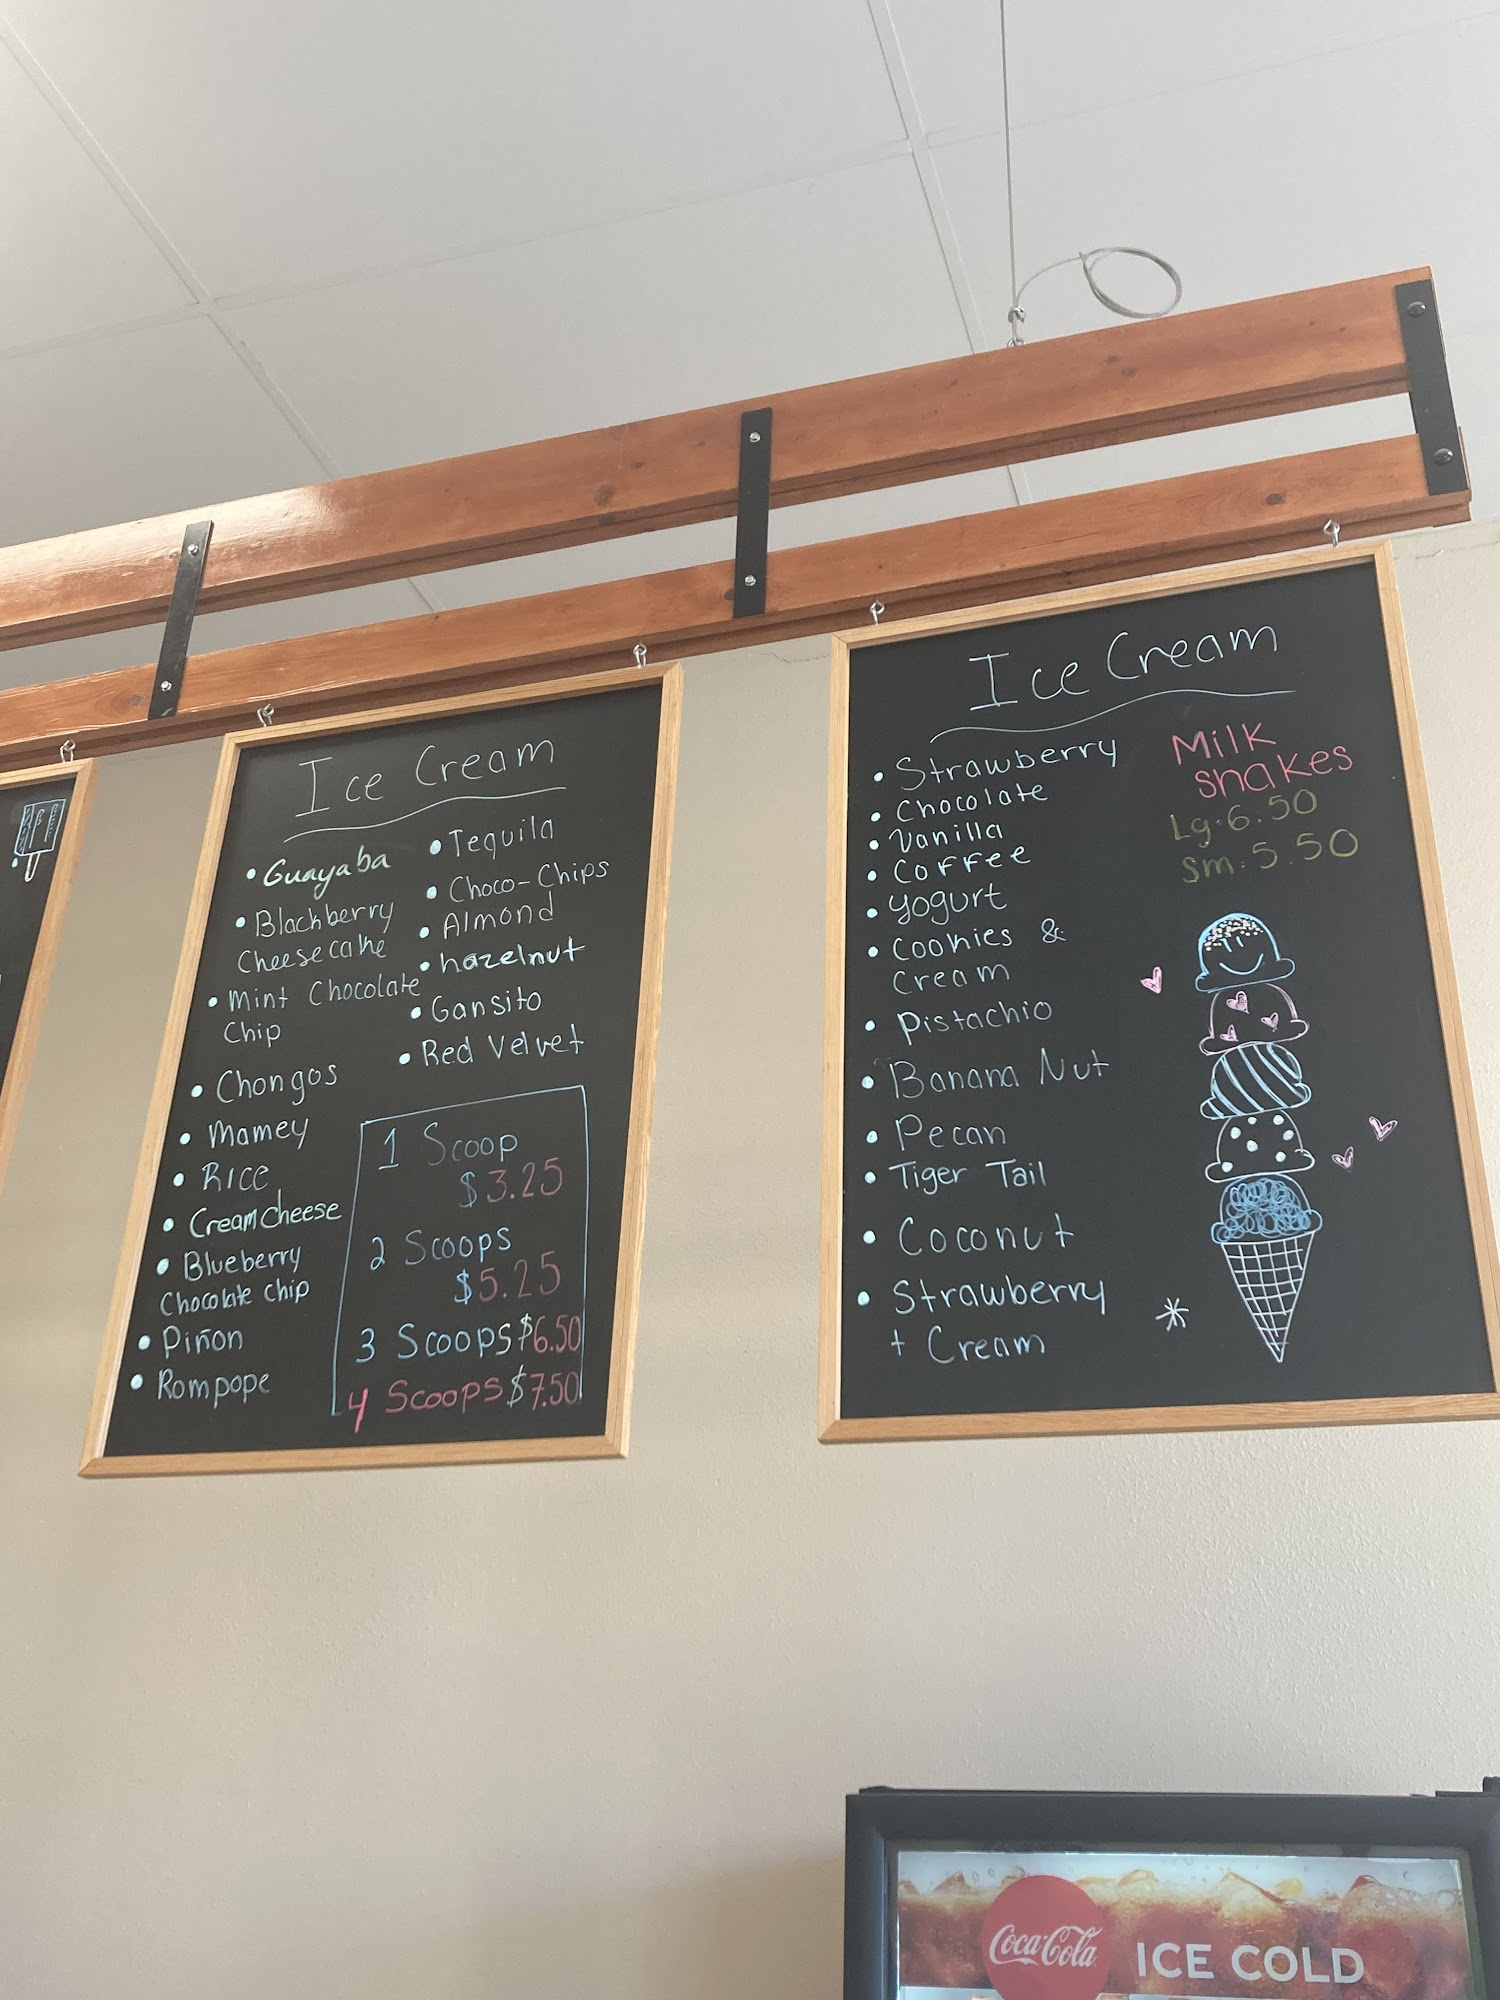 Ice Cream
• Guayaba
• Blackberry
Cheesecake
• Mint Chocolate
Chip
• Chongos
• Mamey
• Rice
• Creamcheese
• Blueberry
Chocolate chip
• Piñon
• Rompope
• Tequila
• Choco-Chips
• Almond
• hazelnut
• Gansito
• Red Velvet
1 Scoop
$3.25
2 Scoops
$5.25
3 Scoops $6.50
4 Scoops $7.50
Ice Cream
• Strawberry
• Chocolate
• Vanilla
• Coffee
• Yogurt
• Cookies &
Cream
• Pistachio
• Banana Nut
• Pecan
• Tiger Tail
• Coconut
• Strawberry
+ Cream
Milk
shakes
Lg. 6.50
Sm. 5.50
Coca-Cola
ICE COLD